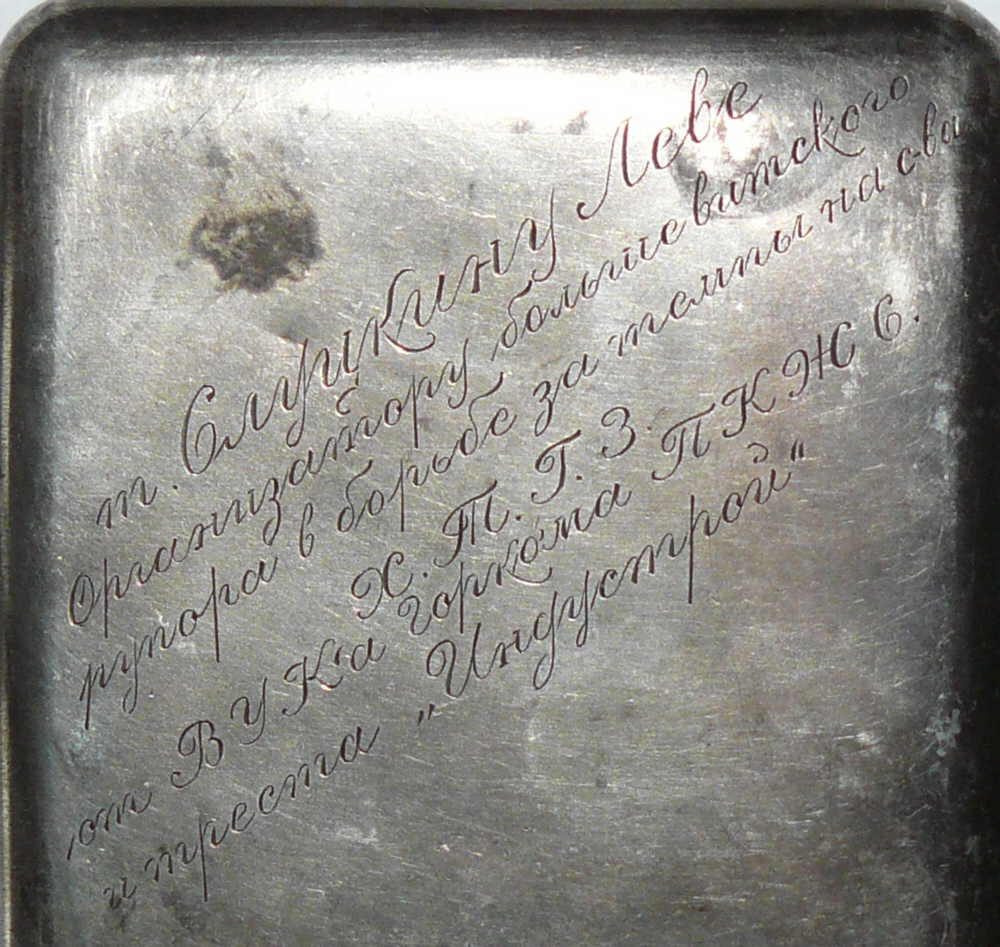 т. Слуцкину Леве
Организатору большевитского
рупора в борьбе за темпы на сва
Х. Т. Г. З.
от ВУКа горкома ПКЖС.
и треста „Индустрой“